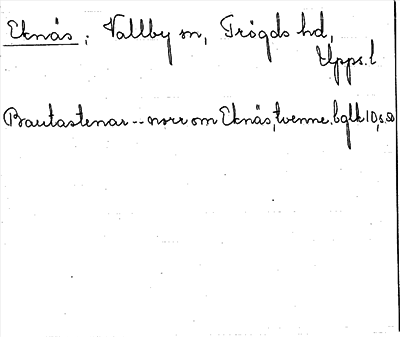 Eknäs; Vallby sn, Trögds hd,
Upps. l
Bautastenar -- norr om Eknäs, tvenne. bglk 10, s.